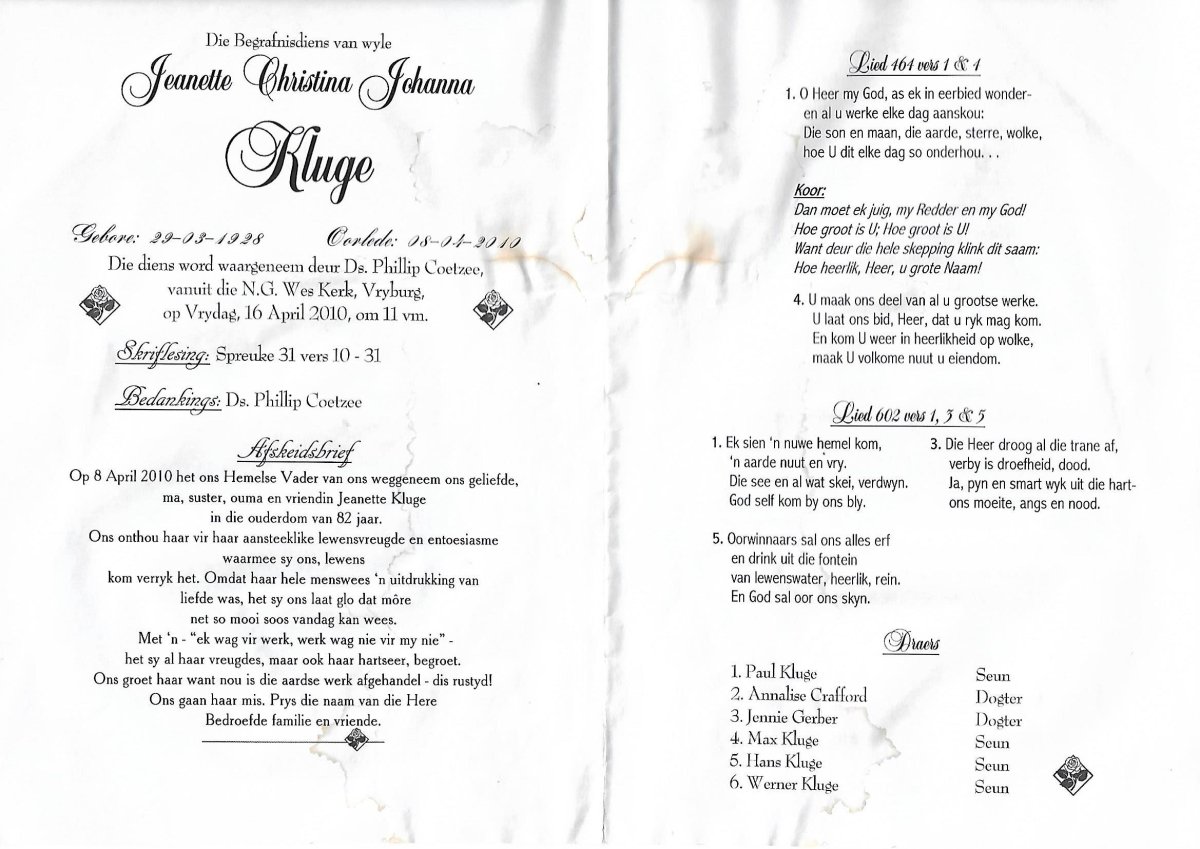 Die Begrafnisdiens van wyle
Jeanette Christina Johanna
Kluge
Gebore: 29-03-1928 Oorlede: 08-04-2010
Die diens word waargeneem deur Ds. Phillip Coetzee,
vanuit die N.G. Wes Kerk, Vryburg,
op Vrydag, 16 April 2010, om 11 vm.
Skriflesing: Spreuke 31 vers 10 - 31
Bedankings: Ds. Phillip Coetzee
Afskeidsbrief
Op 8 April 2010 het ons Hemelse Vader van ons weggeneem ons geliefde,
ma, suster, ouma en vriendin Jeanette Kluge
in die ouderdom van 82 jaar.
Ons onthou haar vir haar aansteeklike lewensvreugde en entoesiasme
waarmee sy ons, lewens
kom verryk het. Omdat haar hele menswees ‘n uitdrukking van
liefde was, het sy ons laat glo dat môre
net so mooi soos vandag kan wees.
Met ‘n - “ek wag vir werk, werk wag nie vir my nie” -
het sy al haar vreugdes, maar ook haar hartseer, begroet.
Ons groet haar want nou is die aardse werk afgehandel - dis rustyd!
Ons gaan haar mis. Prys die naam van die Here
Bedroefde familie en vriende.
Lied 464 vers 1 & 4
1. O Heer my God, as ek in eerbied wonder-
en al u werke elke dag aanskou:
Die son en maan, die aarde, sterre, wolke,
hoe U dit elke dag so onderhou. . .
Koor:
Dan moet ek juig, my Redder en my God!
Hoe groot is U; Hoe groot is U!
Want deur die hele skepping klink dit saam:
Hoe heerlik, Heer, u grote Naam!
4. U maak ons deel van al u grootse werke.
U laat ons bid, Heer, dat u ryk mag kom.
En kom U weer in heerlikheid op wolke,
maak U volkome nuut u eiendom.
Lied 602 vers 1, 3 & 5
1. Ek sien ‘n nuwe hemel kom,
‘n aarde nuut en vry.
Die see en al wat skei, verdwyn.
God self kom by ons bly.
3. Die Heer droog al die trane af,
verby is droefheid, dood.
Ja, pyn en smart wyk uit die hart-
ons moeite, angs en nood.
5. Oorwinnaars sal ons alles erf
en drink uit die fontein
van lewenswater, heerlik, rein.
En God sal oor ons skyn.
Draers
1. Paul Kluge Seun
2. Annalise Crafford Dogter
3. Jennie Gerber Dogter
4. Max Kluge Seun
5. Hans Kluge Seun
6. Werner Kluge Seun